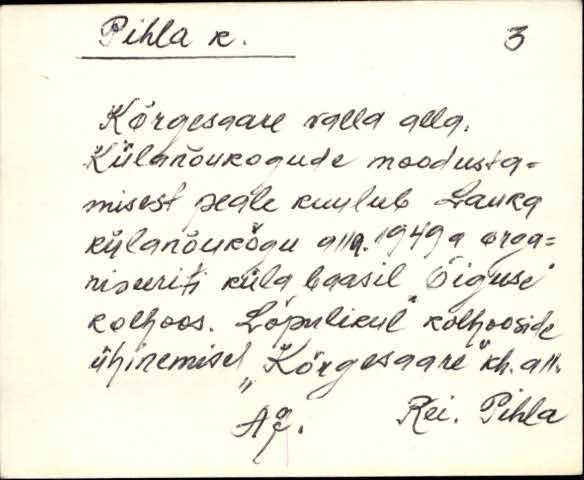 Pihla k. 3
Kõrgesaare valla alla.
Külanõukogude moodusta=
misest peale kuulub Lauka
külanõukogu alla. 1949 a orga=
niseeriti küla baasil "Õiguse"
kolhoos. Lõpulikul kolhooside
ühinemisel "Kõrgesaare" kh. all.
Rei. Pihla